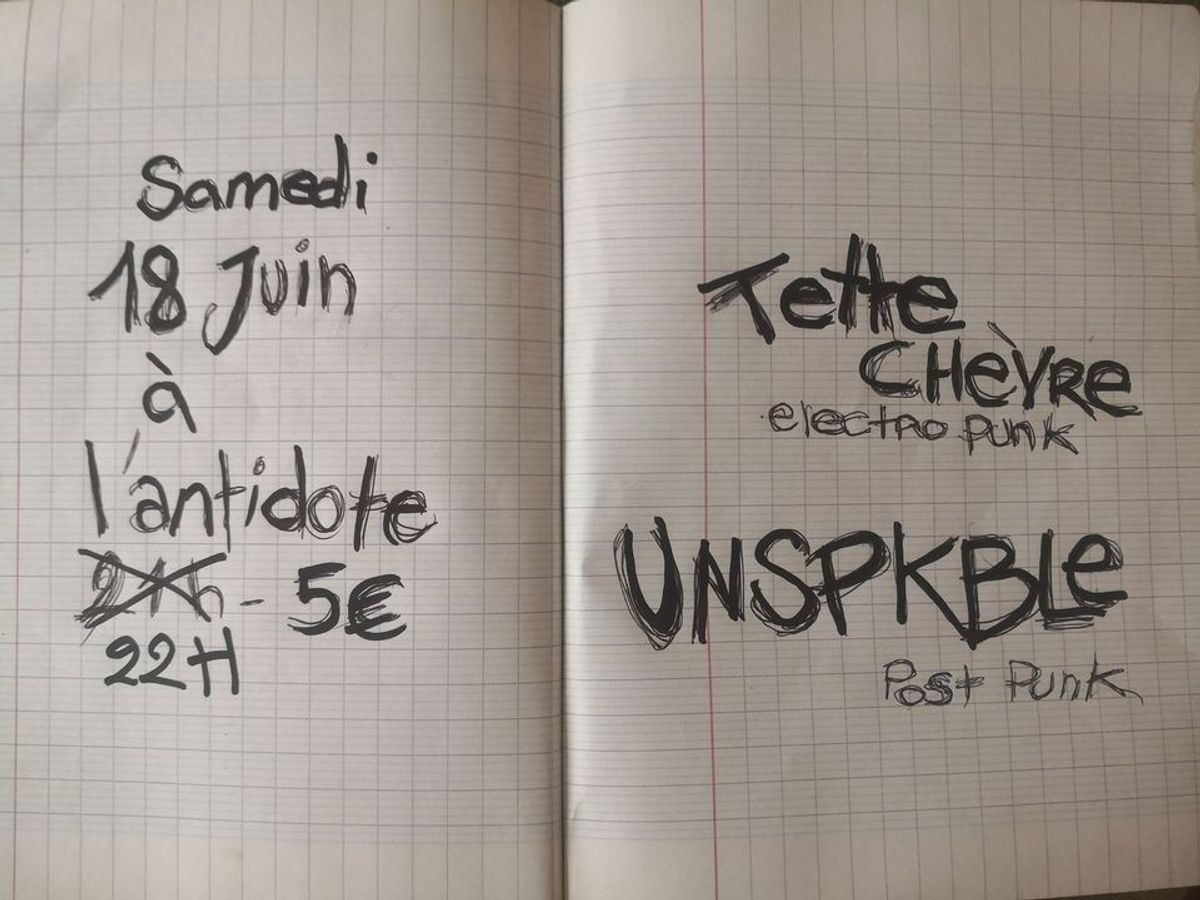 Samedi
18 Juin
à
l'antidote
21h - 5€
22H
Tette
CHÈVRE
electro punk
UNSPKBLe
Post Punk